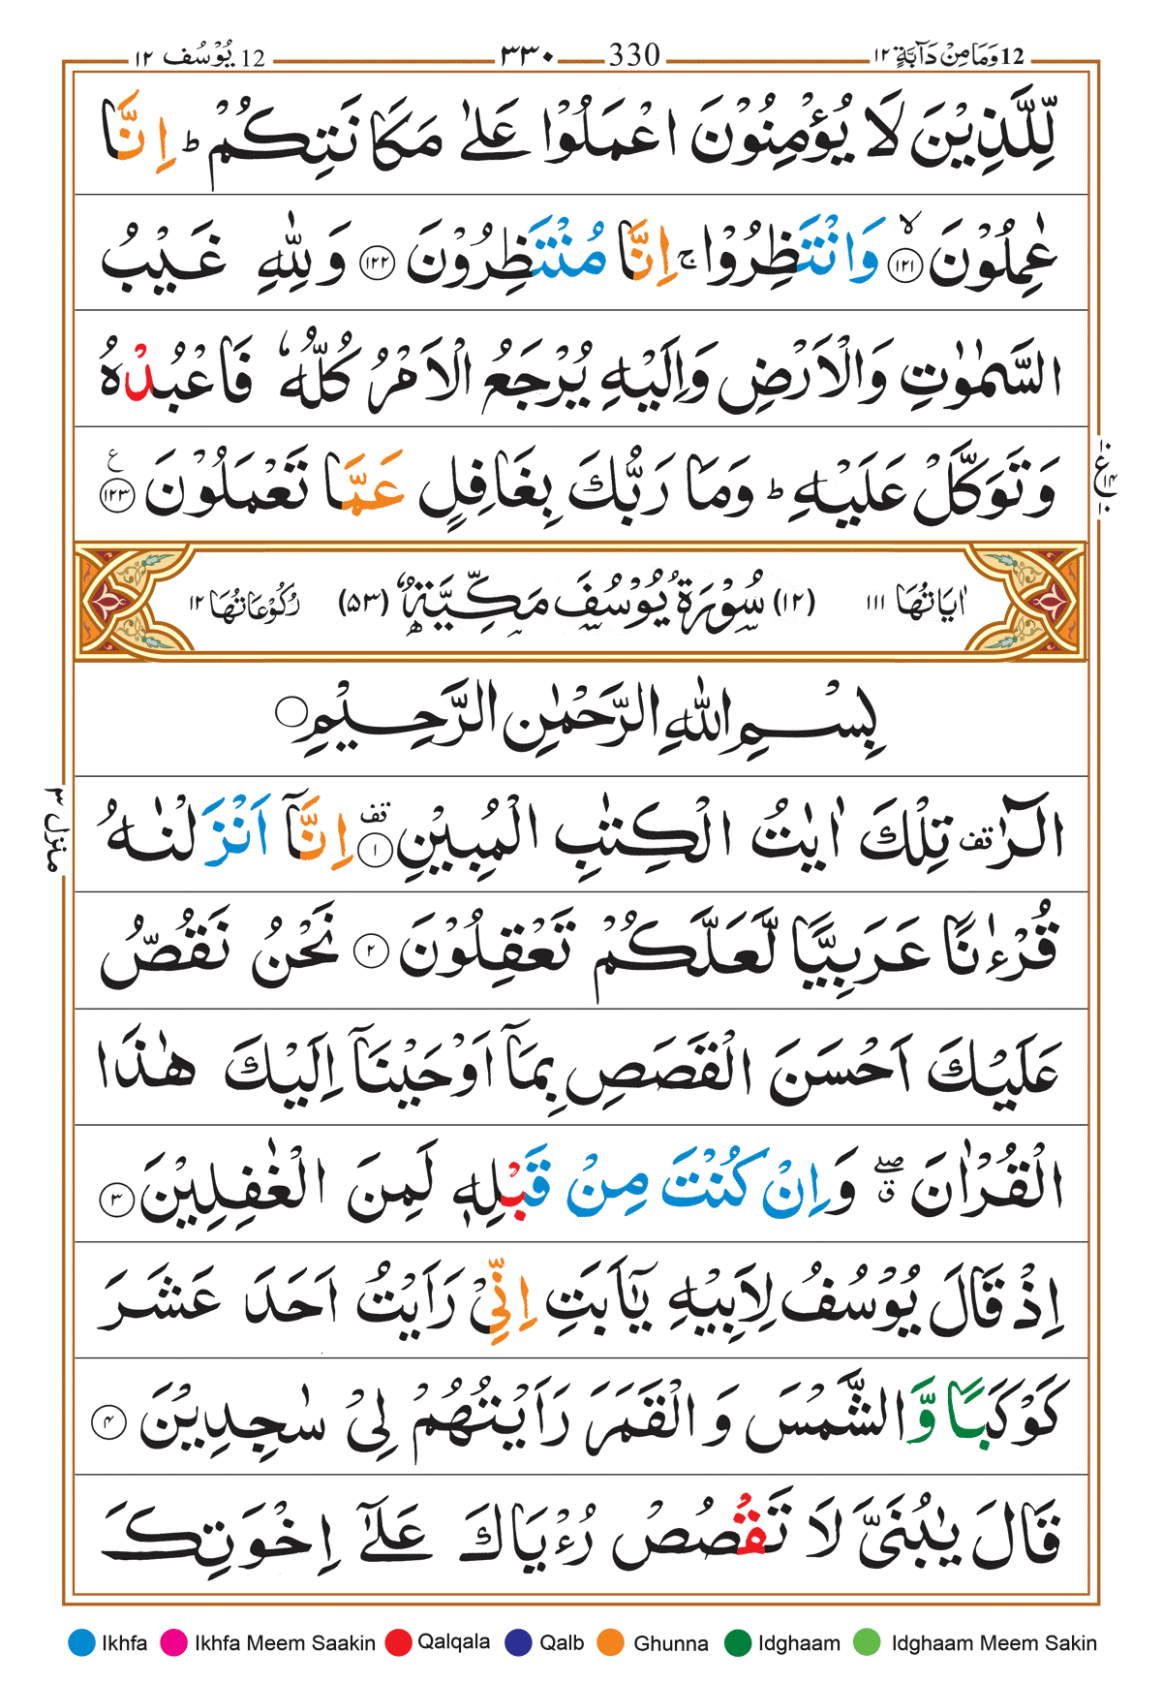 12 وَمَا مِنْ دَآبَّةٍ ١٢ 330 ٣٣٠ 12 يُوْسُف ١٢
لِّلَّذِيْنَ لَا يُؤْمِنُوْنَ اعْمَلُوْا عَلٰى مَكَانَتِكُمْ ؕ اِنَّا
عٰمِلُوْنَ ۙ ﴿١٢١﴾ وَانْتَظِرُوْا ۚ اِنَّا مُنْتَظِرُوْنَ ﴿١٢٢﴾ وَلِلّٰهِ غَيْبُ
السَّمٰوٰتِ وَالْاَرْضِ وَاِلَيْهِ يُرْجَعُ الْاَمْرُ كُلُّهٗ فَاعْبُدْهُ
وَتَوَكَّلْ عَلَيْهِ ؕ وَمَا رَبُّكَ بِغَافِلٍ عَمَّا تَعْمَلُوْنَ ﴿١٢٣﴾ ع
ع ١٠ ١٤ ١٠
اٰيَاتُهَا ١١١ (١٢) سُوْرَةُ يُوْسُفَ مَكِّيَّةٌ (٥٣) رُكُوْعَاتُهَا ١٢
بِسْمِ اللّٰهِ الرَّحْمٰنِ الرَّحِيْمِ
الٓرٰ تف تِلْكَ اٰيٰتُ الْكِتٰبِ الْمُبِيْنِ ﴿١﴾ تف اِنَّاۤ اَنْزَلْنٰهُ
منزل ٣
قُرْءٰنًا عَرَبِيًّا لَّعَلَّكُمْ تَعْقِلُوْنَ ﴿٢﴾ نَحْنُ نَقُصُّ
عَلَيْكَ اَحْسَنَ الْقَصَصِ بِمَاۤ اَوْحَيْنَاۤ اِلَيْكَ هٰذَا
الْقُرْاٰنَ ۖ ق وَاِنْ كُنْتَ مِنْ قَبْلِهٖ لَمِنَ الْغٰفِلِيْنَ ﴿٣﴾
اِذْ قَالَ يُوْسُفُ لِاَبِيْهِ يٰۤاَبَتِ اِنِّيْ رَاَيْتُ اَحَدَ عَشَرَ
كَوْكَبًا وَّالشَّمْسَ وَالْقَمَرَ رَاَيْتُهُمْ لِيْ سٰجِدِيْنَ ﴿٤﴾
قَالَ يٰبُنَيَّ لَا تَقْصُصْ رُءْيَاكَ عَلٰۤى اِخْوَتِكَ
Ikhfa Ikhfa Meem Saakin Qalqala Qalb Ghunna Idghaam Idghaam Meem Sakin